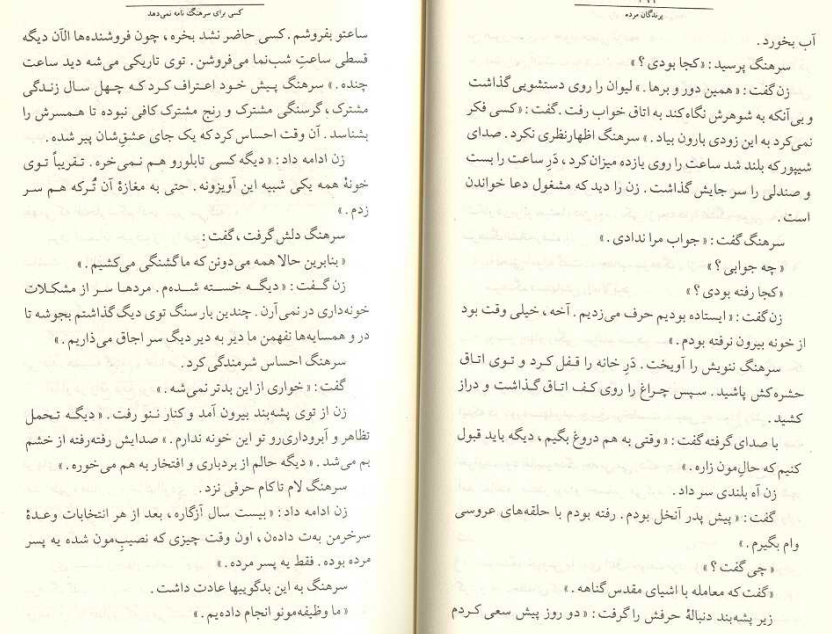 پرندگان مرده
آب بخورد.
سرهنگ پرسید: «کجا بودی؟»
زن گفت: «همین دور و برها.» لیوان را روی دستشویی گذاشت
و بی‌آنکه به شوهرش نگاه کند به اتاق خواب رفت. گفت: «کسی فکر
نمی‌کرد به این زودی بارون بیاد.» سرهنگ اظهارنظری نکرد. صدای
شیپور که بلند شد ساعت را روی یازده میزان کرد، درِ ساعت را بست
و صندلی را سر جایش گذاشت. زن را دید که مشغول دعا خواندن
است.
سرهنگ گفت: «جواب مرا ندادی.»
«چه جوابی؟»
«کجا رفته بودی؟»
زن گفت: «ایستاده بودیم حرف می‌زدیم. آخه، خیلی وقت بود
از خونه بیرون نرفته بودم.»
سرهنگ ننویش را آویخت. درِ خانه را قفل کرد و توی اتاق
حشره‌کش پاشید. سپس چراغ را روی کف اتاق گذاشت و دراز
کشید.
با صدای گرفته گفت: «وقتی به هم دروغ بگیم، دیگه باید قبول
کنیم که حال‌مون زاره.»
زن آه بلندی سر داد.
گفت: «پیش پدر آنخل بودم. رفته بودم با حلقه‌های عروسی
وام بگیرم.»
«چی گفت؟»
«گفت که معامله با اشیای مقدس گناهه.»
زیر پشه‌بند دنبالهٔ حرفش را گرفت: «دو روز پیش سعی کردم
کسی برای سرهنگ نامه نمی‌دهد
ساعتو بفروشم. کسی حاضر نشد بخره، چون فروشنده‌ها الآن دیگه
قسطی ساعتِ شب‌نما می‌فروشن. توی تاریکی می‌شه دید ساعت
چنده.» سرهنگ پیش خود اعتراف کرد که چهل سال زندگی
مشترک، گرسنگی مشترک و رنج مشترک کافی نبوده تا همسرش را
بشناسد. آن وقت احساس کرد که یک جای عشق‌شان پیر شده.
زن ادامه داد: «دیگه کسی تابلورو هم نمی‌خره. تقریباً توی
خونهٔ همه یکی شبیه این آویزونه. حتی به مغازهٔ آن تُرکه هم سر
زدم.»
سرهنگ دلش گرفت، گفت:
«بنابرین حالا همه می‌دونن که ما گشنگی می‌کشیم.»
زن گفت: «دیگه خسته شده‌م. مردها سر از مشکلات
خونه‌داری در نمی‌آرن. چندین بار سنگ توی دیگ گذاشتم بجوشه تا
در و همسایه‌ها نفهمن ما دیر به دیر دیگ سر اجاق می‌ذاریم.»
سرهنگ احساس شرمندگی کرد.
گفت: «خواری از این بدتر نمی‌شه.»
زن از توی پشه‌بند بیرون آمد و کنار ننو رفت. «دیگه تحمل
تظاهر و آبروداری‌رو تو این خونه ندارم.» صدایش رفته‌رفته از خشم
بم می‌شد. «دیگه حالم از بردباری و افتخار به هم می‌خوره.»
سرهنگ لام تا کام حرفی نزد.
زن ادامه داد: «بیست سال آزگاره، بعد از هر انتخابات وعدهٔ
سرخرمن به‌ت داده‌ن، اون وقت چیزی که نصیب‌مون شده یه پسر
مرده بوده. فقط یه پسر مرده.»
سرهنگ به این بدگوییها عادت داشت.
«ما وظیفه‌مونو انجام داده‌یم.»